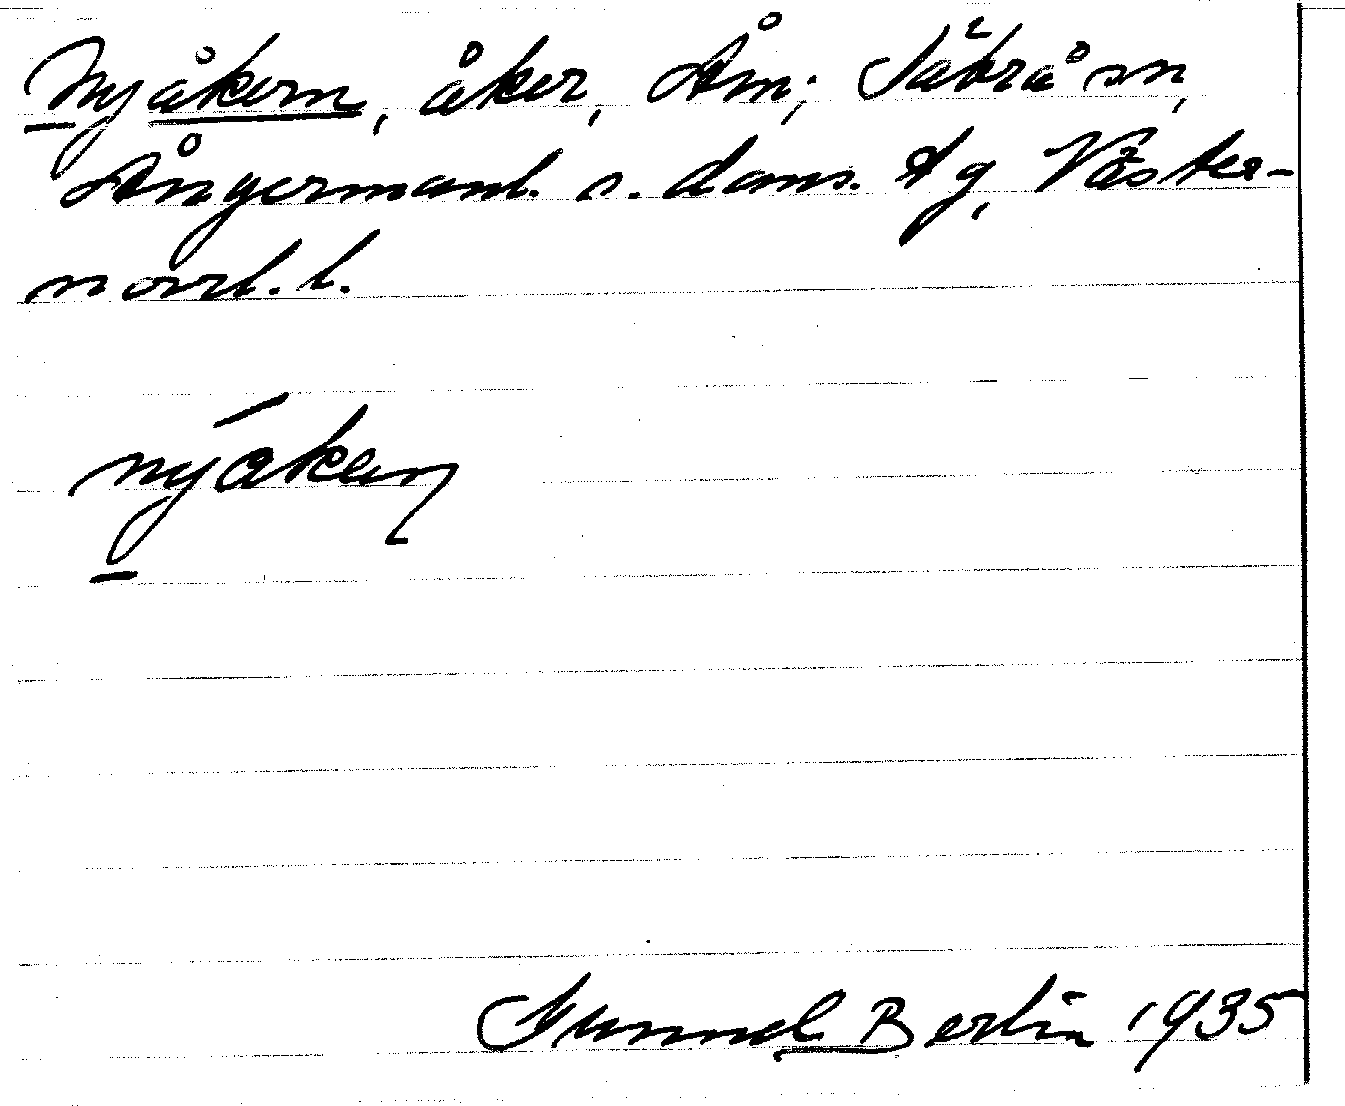 Nyåkern, åker, Åm; Säbrå sn,
Ångermanl. s. doms. tg, Väster-
norrl. l.
nyákeɳ
Gunnel Berlin 1935